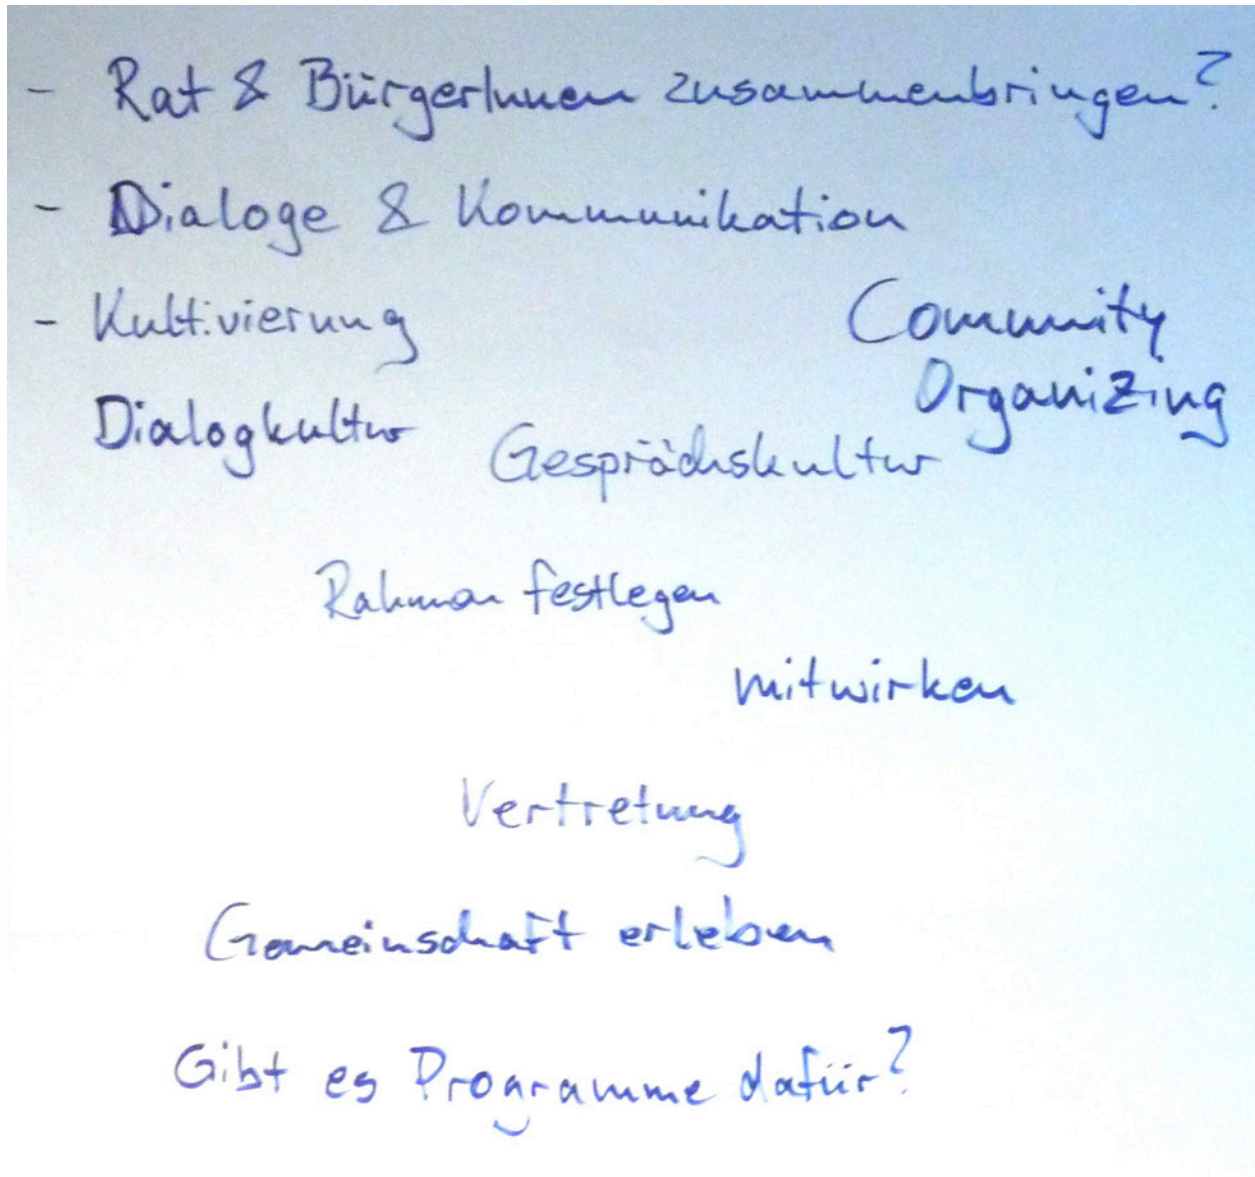 - Rat & BürgerInnen zusammenbringen?
- Dialoge & Kommunikation
- Kultivierung
Community
Organizing
Dialogkultur
Gesprächskultur
Rahmen festlegen
mitwirken
Vertretung
Gemeinschaft erleben
Gibt es Programme dafür?